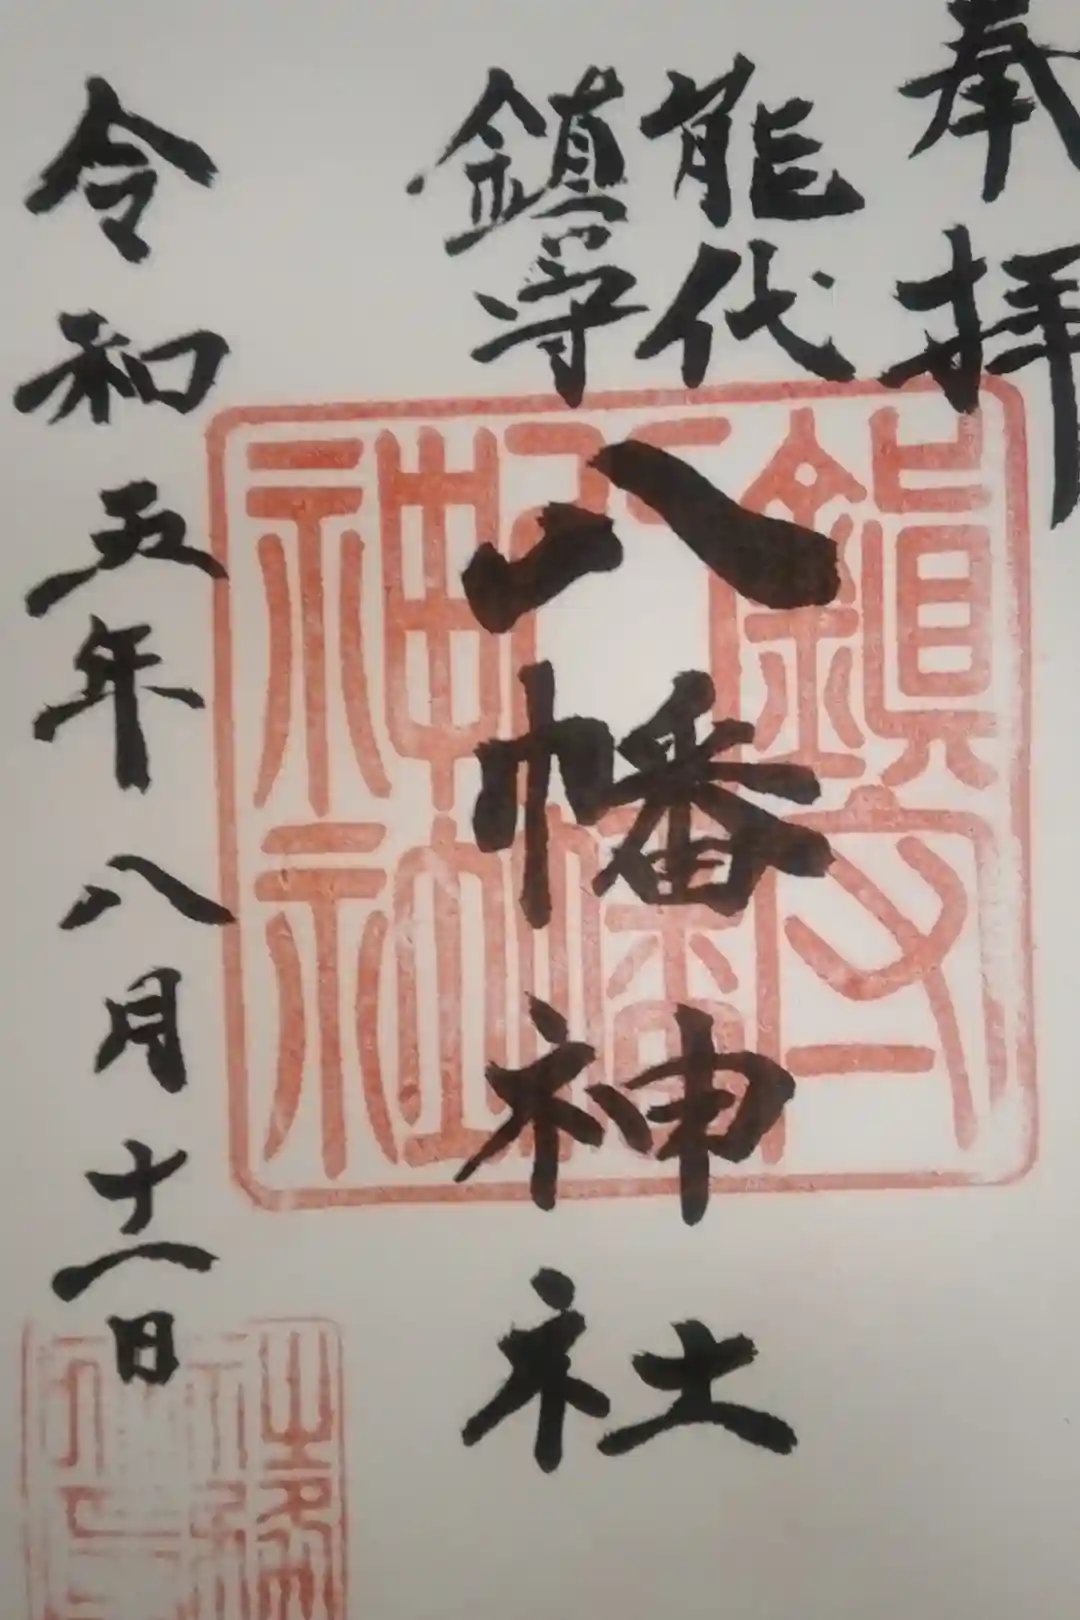 奉拝
能代
鎮守
八幡神社
令和五年八月十一日
鎮守八幡神社
社務所印